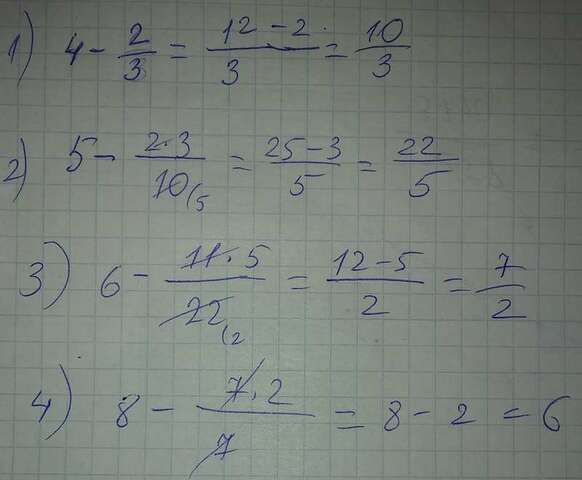 1) 4 - 2/3 = (12 - 2)/3 = 10/3
2) 5 - (2·3)/10(5 = (25 - 3)/5 = 22/5
3) 6 - (11·5)/22(2 = (12 - 5)/2 = 7/2
4) 8 - (7·2)/7 = 8 - 2 = 6